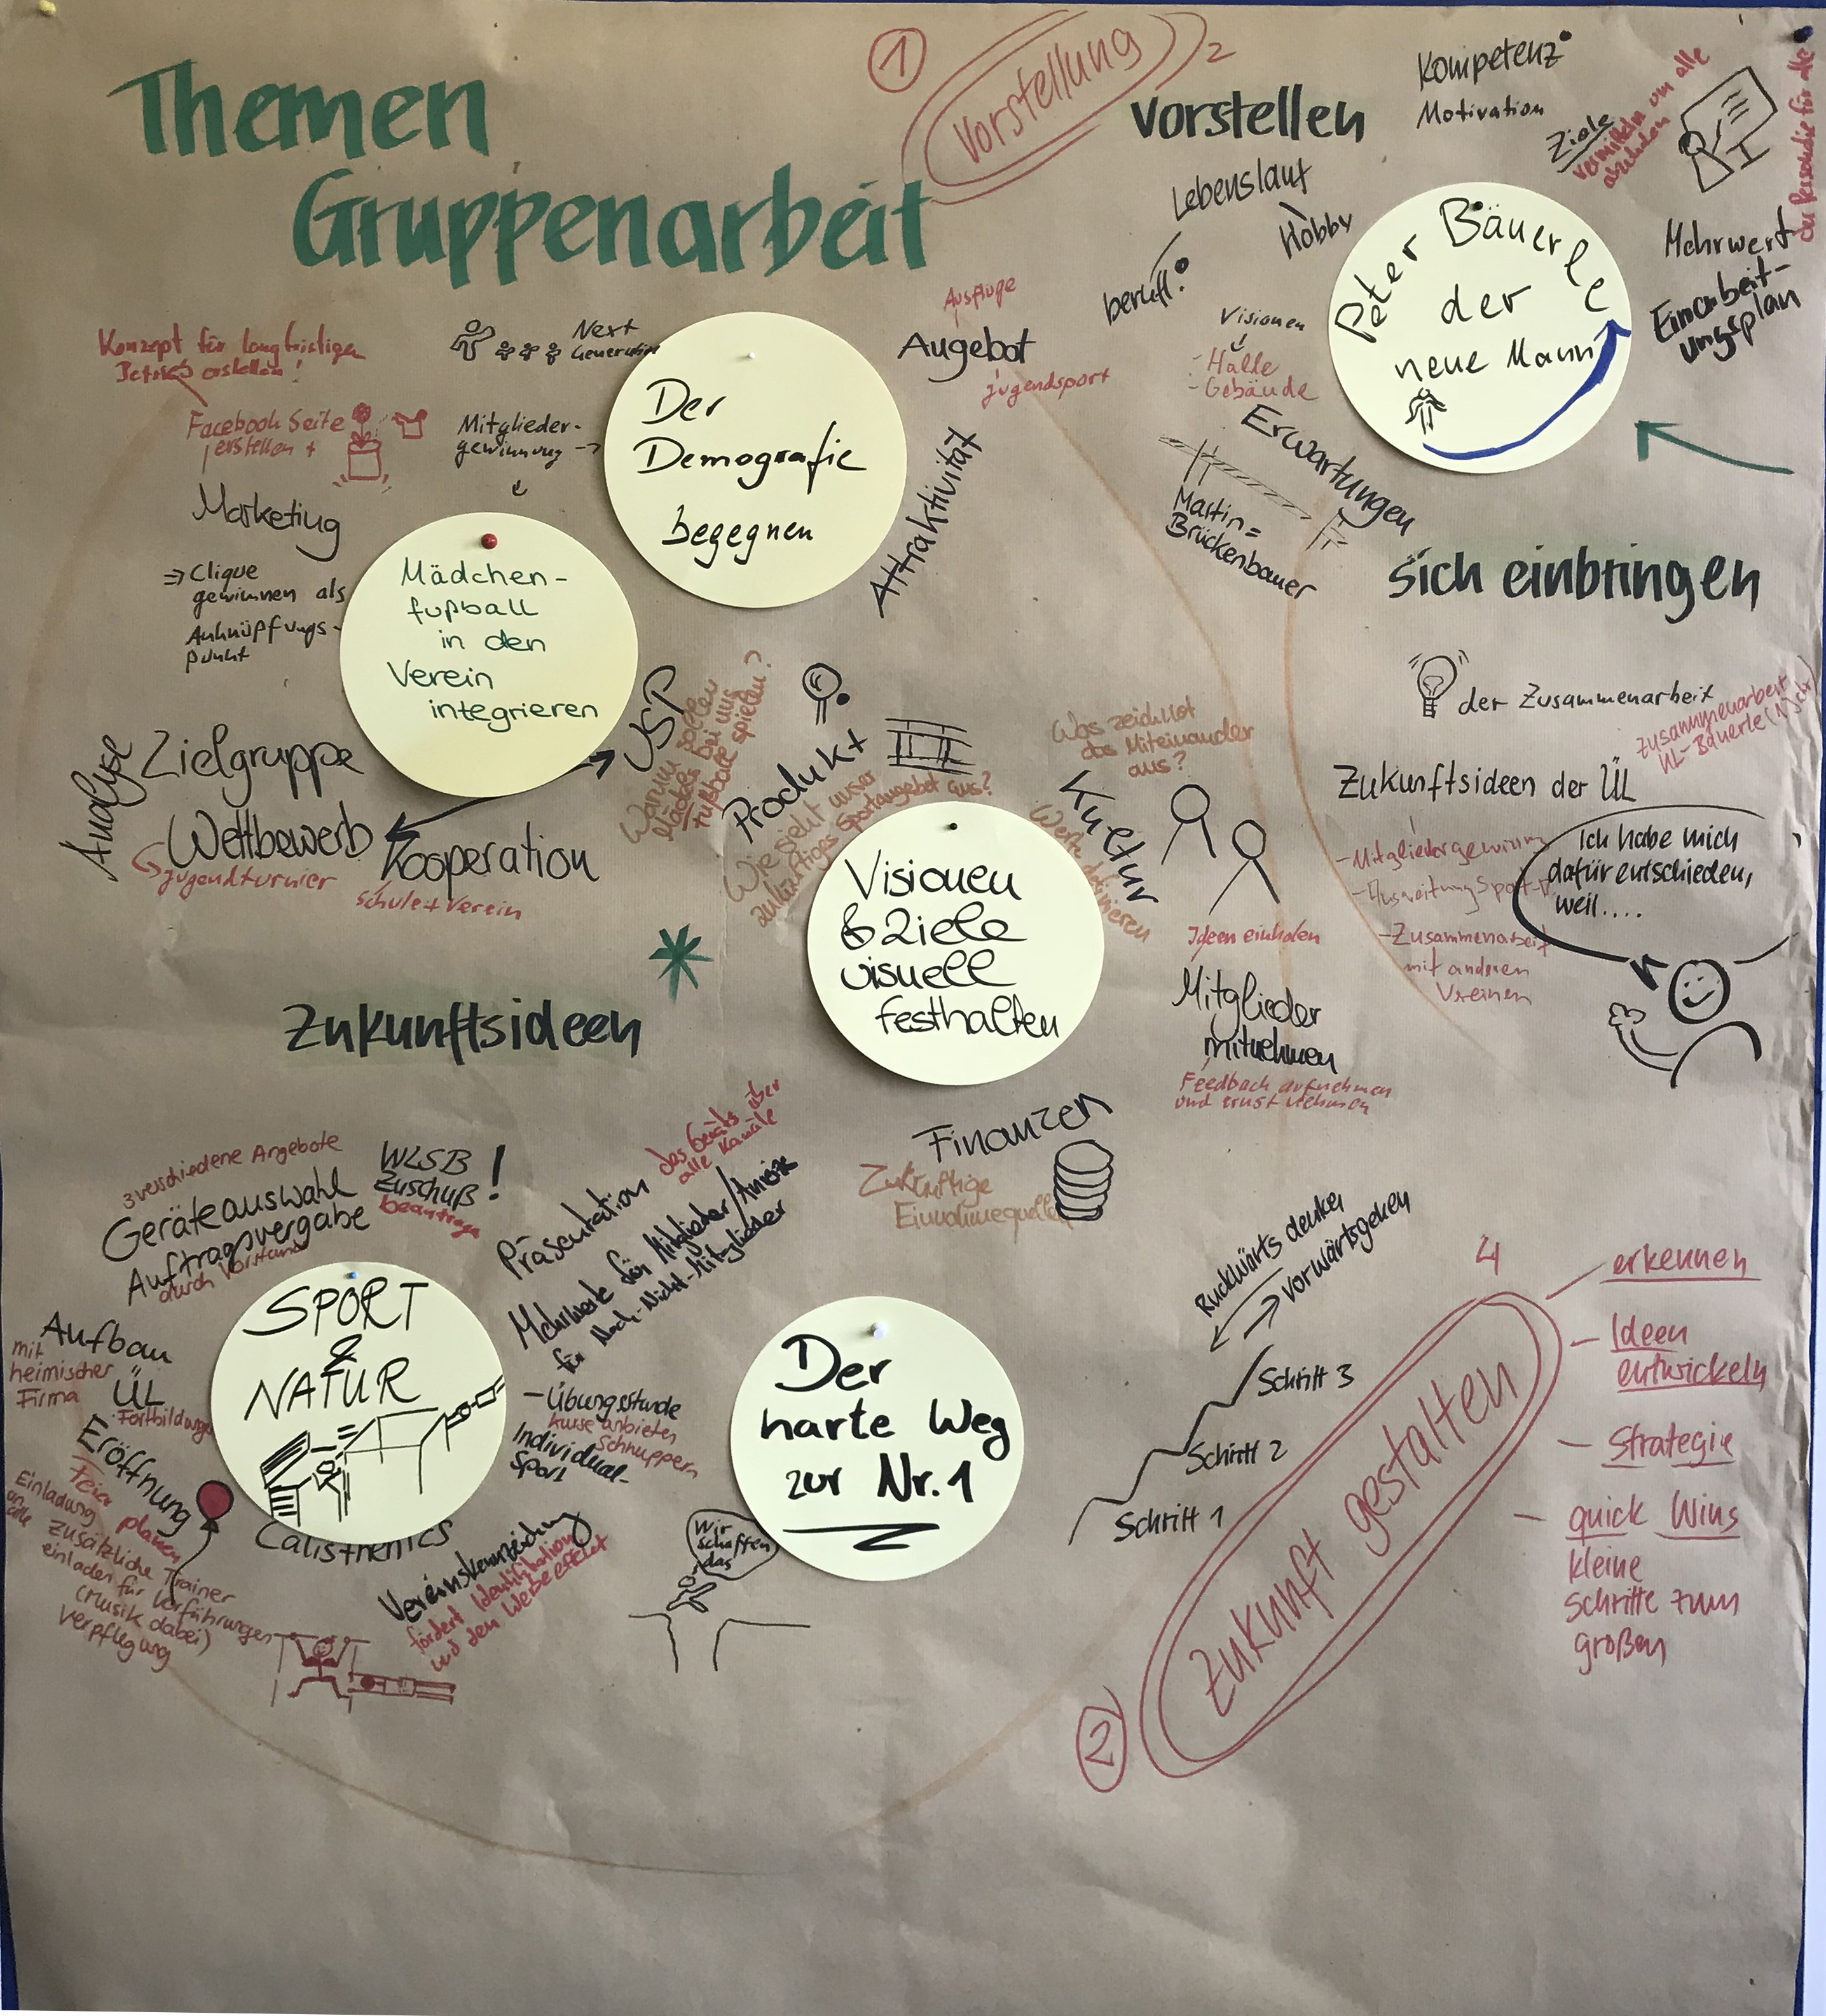 Themen
Gruppenarbeit
1
Vorstellung
2
Vorstellen
Kompetenz
Motivation
Ziele
vermitteln um alle
abzuholen
für alle
Mehrwert
Einarbeit-
ungsplan
Lebenslauf
Hobby
berufl.
Peter Bäuerle
der
neue Mann
Visionen
- Halle
- Gebäude
Erwartungen
Martin =
Brückenbauer
Ausflüge
Angebot
Jugendsport
Attraktivität
Next
Generation
Der
Demografie
begegnen
Mitglieder-
gewinnung →
Konzept für langfristigen
Betrieb erstellen!
Facebook Seite
erstellen +
Marketing
⇒ Clique
gewinnen als
Anknüpfungs-
punkt
Mädchen-
fußball
in den
Verein
integrieren
USP
Warum sollen
Mädels bei uns
Fußball spielen?
Analyse
Zielgruppe
Wettbewerb
Jugendturnier
Kooperation
Schule + Verein
Produkt
Wie sieht unser
zukünftiges Sportangebot aus?
Visionen
& Ziele
visuell
festhalten
Was zeichnet
das Miteinander
aus?
Kultur
Werte definieren
Ideen einholen
Mitglieder
mitnehmen
Feedback aufnehmen
und ernst nehmen
Finanzen
Zukünftige
Einnahmequellen
Sich einbringen
der Zusammenarbeit
Zusammenarbeit
ÜL - Bäuerle
Zukunftsideen der ÜL
- Mitgliedergewinnung
- Ausweitung Sport-
- Zusammenarbeit
mit anderen
Vereinen
Ich habe mich
dafür entschieden,
weil....
Zukunftsideen
3 verschiedene Angebote
Geräteauswahl
Auftragsvergabe
durch Vorstand
WLSB
Zuschuß!
beantragen
Aufbau
mit
heimischer
Firma
ÜL
Fortbildung
Eröffnung
Feier planen
Einladung
an alle
zusätzliche Trainer
einladen für Vorführungen
(Musik dabei)
Verpflegung
SPORT
&
NATUR
Calisthenics
Präsentation
das Geräts über
alle Kanäle
Mehrwerte für Mitglieder/Anreize
für Noch-Nicht-Mitglieder
- Übungsstunde
Kurse anbieten
Schnuppern
Individual-
sport
Vereinskennzeichnung
fördert Identifikation
und den Werbeeffekt
Der
harte Weg
zur Nr. 1
Wir
schaffen
das
Rückwärts denken
vorwärtsgehen
Schritt 3
Schritt 2
Schritt 1
2
Zukunft gestalten
4
erkennen
- Ideen
entwickeln
- Strategie
- quick Wins
kleine
Schritte zum
großen